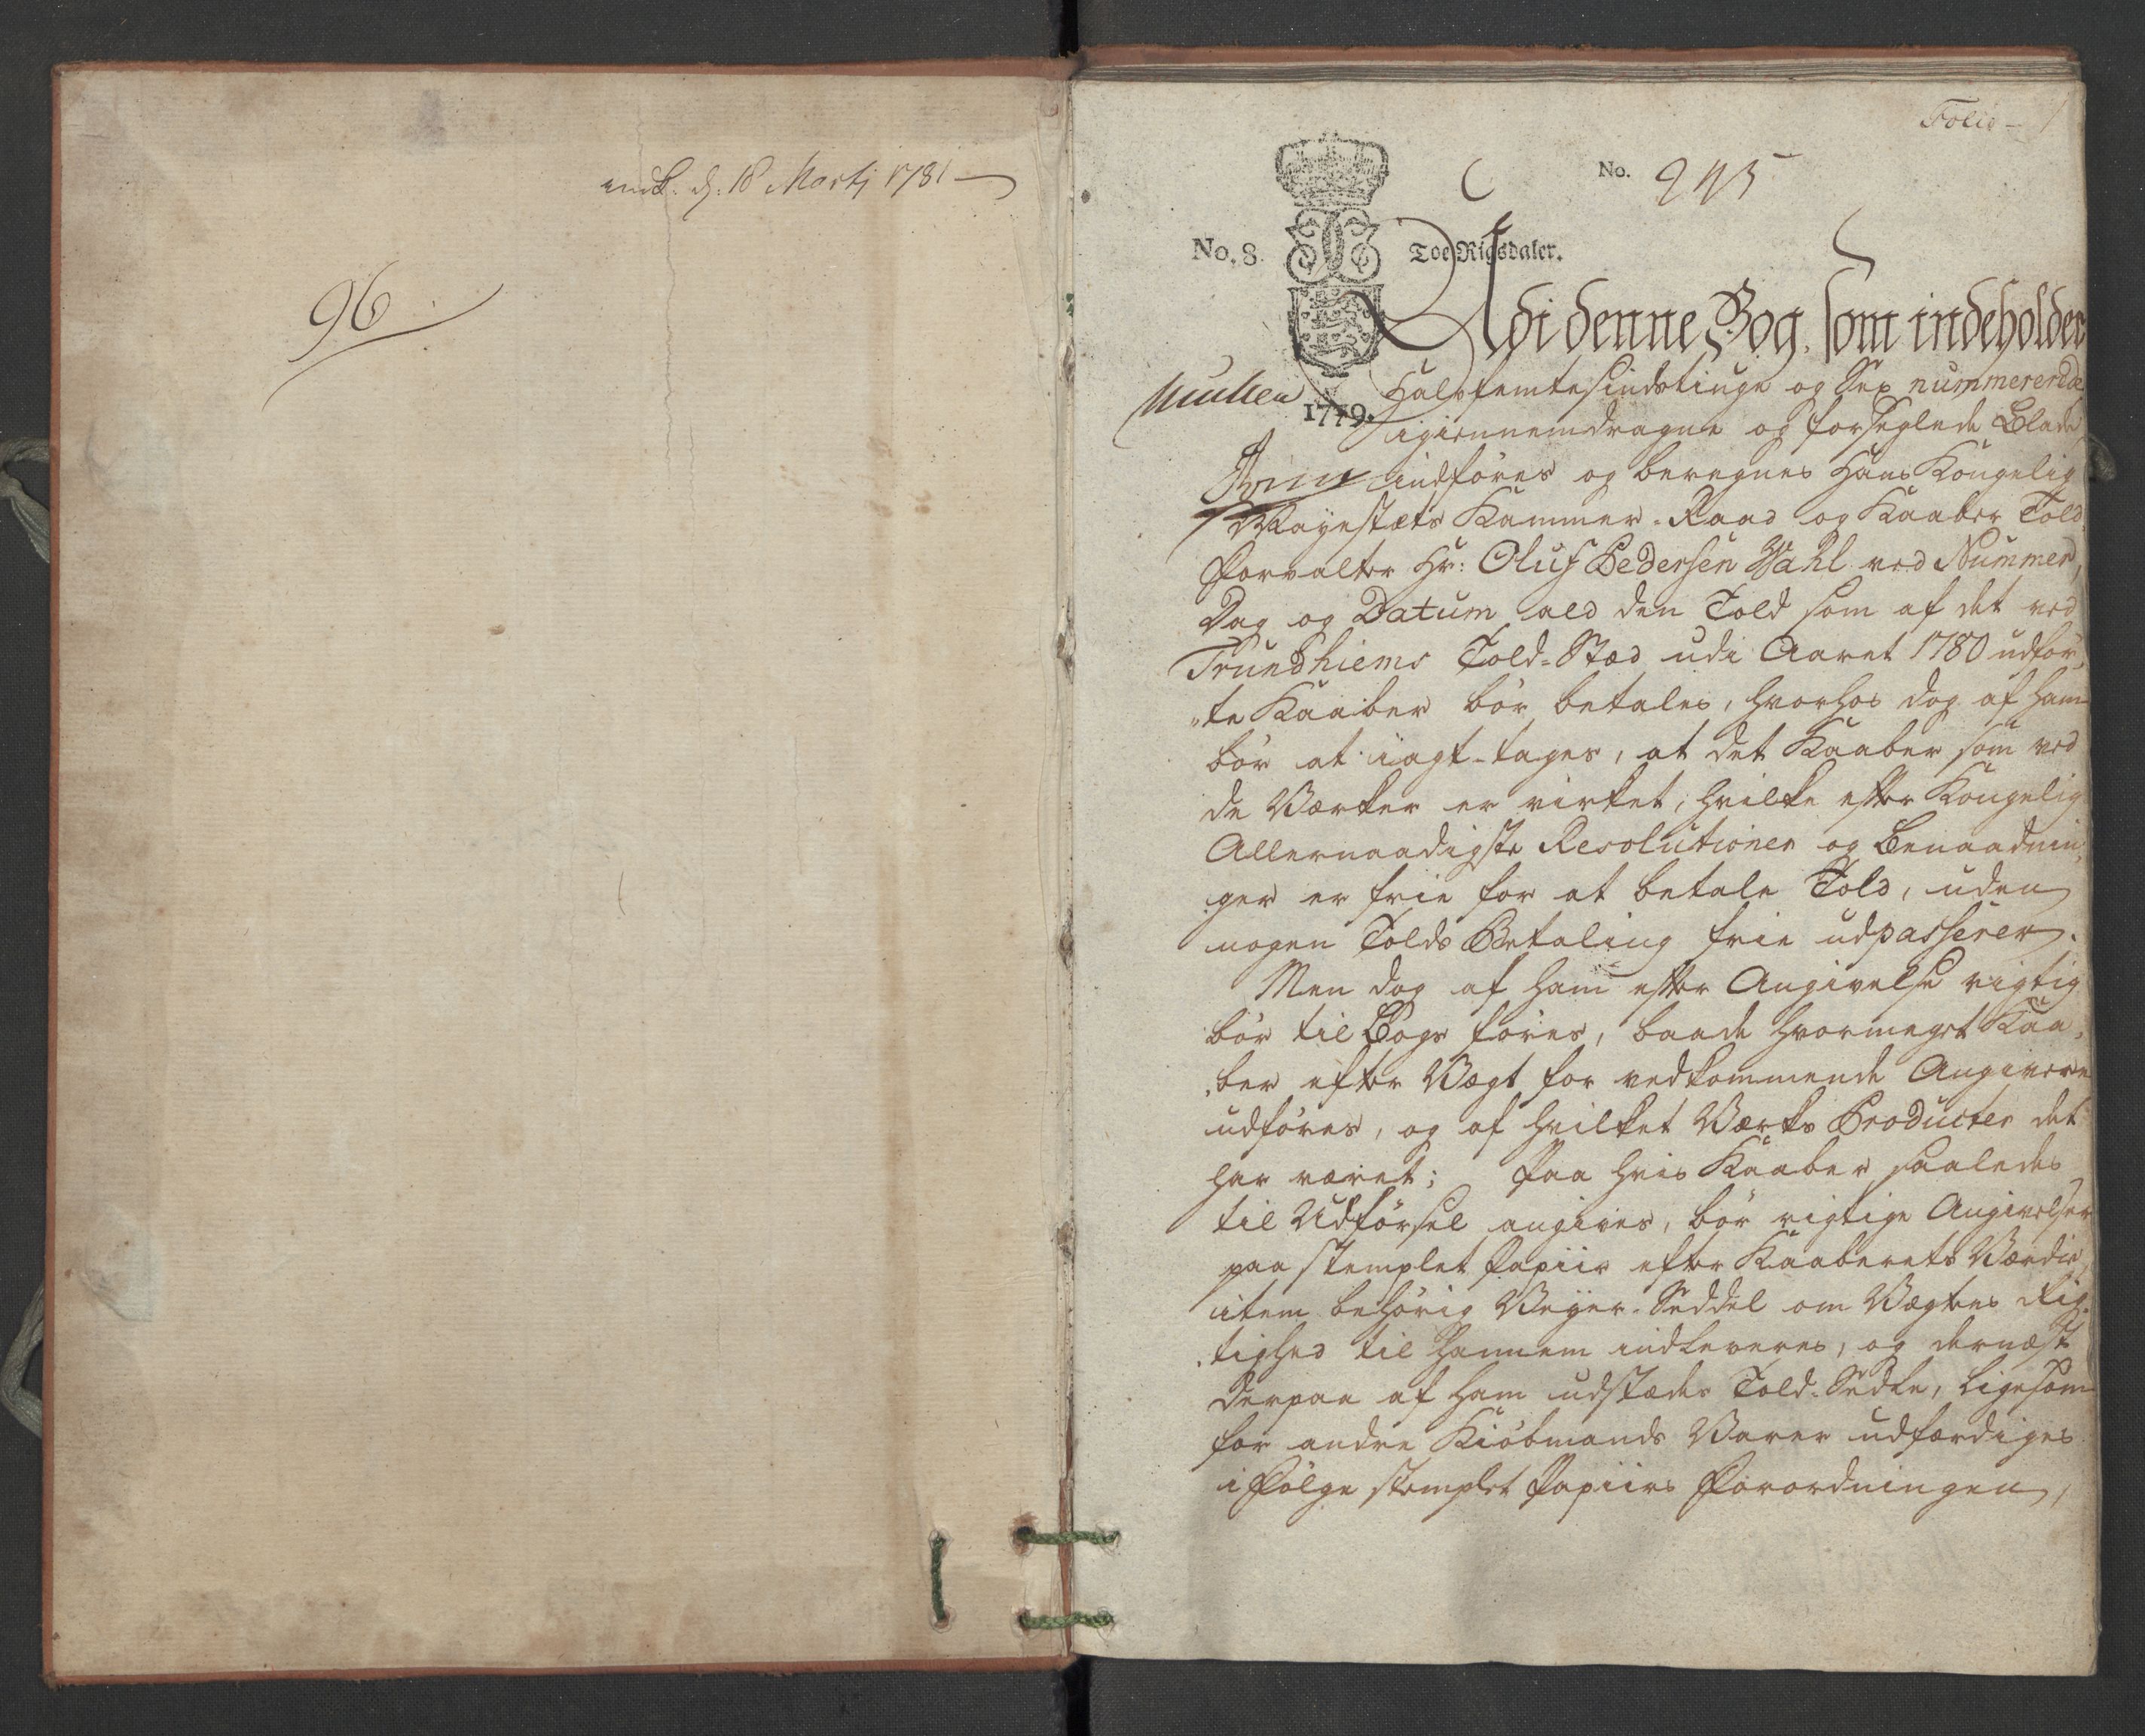 indk. d: 18 Martj 1781
96
Folio 1
No. 245
No. 8. Toe Rigsdaler.
1779.
Udi denne Bog, som indeholder
Halvfemtesindstiuge og Sex nummererede
igiennemdragne og forseglede Blade,
indføres og beregnes Hans Kongelig
Mayestæts Kammer-Raad og Kaaber Told
Forvalter Hr: Oluf Pedersen Wahl ved Nummer,
Dag og Datum ald den Told som af det ved
Trundhiems Told-Stæd udi Aaret 1780 udfør„
„te Kaaber bør betales, hvorhos dog af ham
bør at iagt-tages, at det Kaaber som ved
de Værker er virket, hvilke efter Kongelig
Allernaadigste Resolutioner og Benaadnin„
„ger er frie for at betale Told, uden
nogen Tolds Betaling frie udpasserer.
Men dog af ham efter Angivelse rigtig
bør til Bogs føres, baade hvormeget Kaa„
„ber efter Vægt for vedkommende Angivere
udføres, og af hvilket Værks Producter det
har været; Paa hvis Kaaber saaledes
til Udførsel angives, bør rigtige Angivelser
paa stemplet Papiir efter Kaaberets Værdie,
item behørig Veyer-Seddel om Vægtens Rig„
„tighed til hannem indleveres, og dernæst
derpaa af ham udstædes Told-Sedle, ligesom
for andre Kiøbmands Varer udfærdiges
i Følge stemplet Papiirs Forordningen,